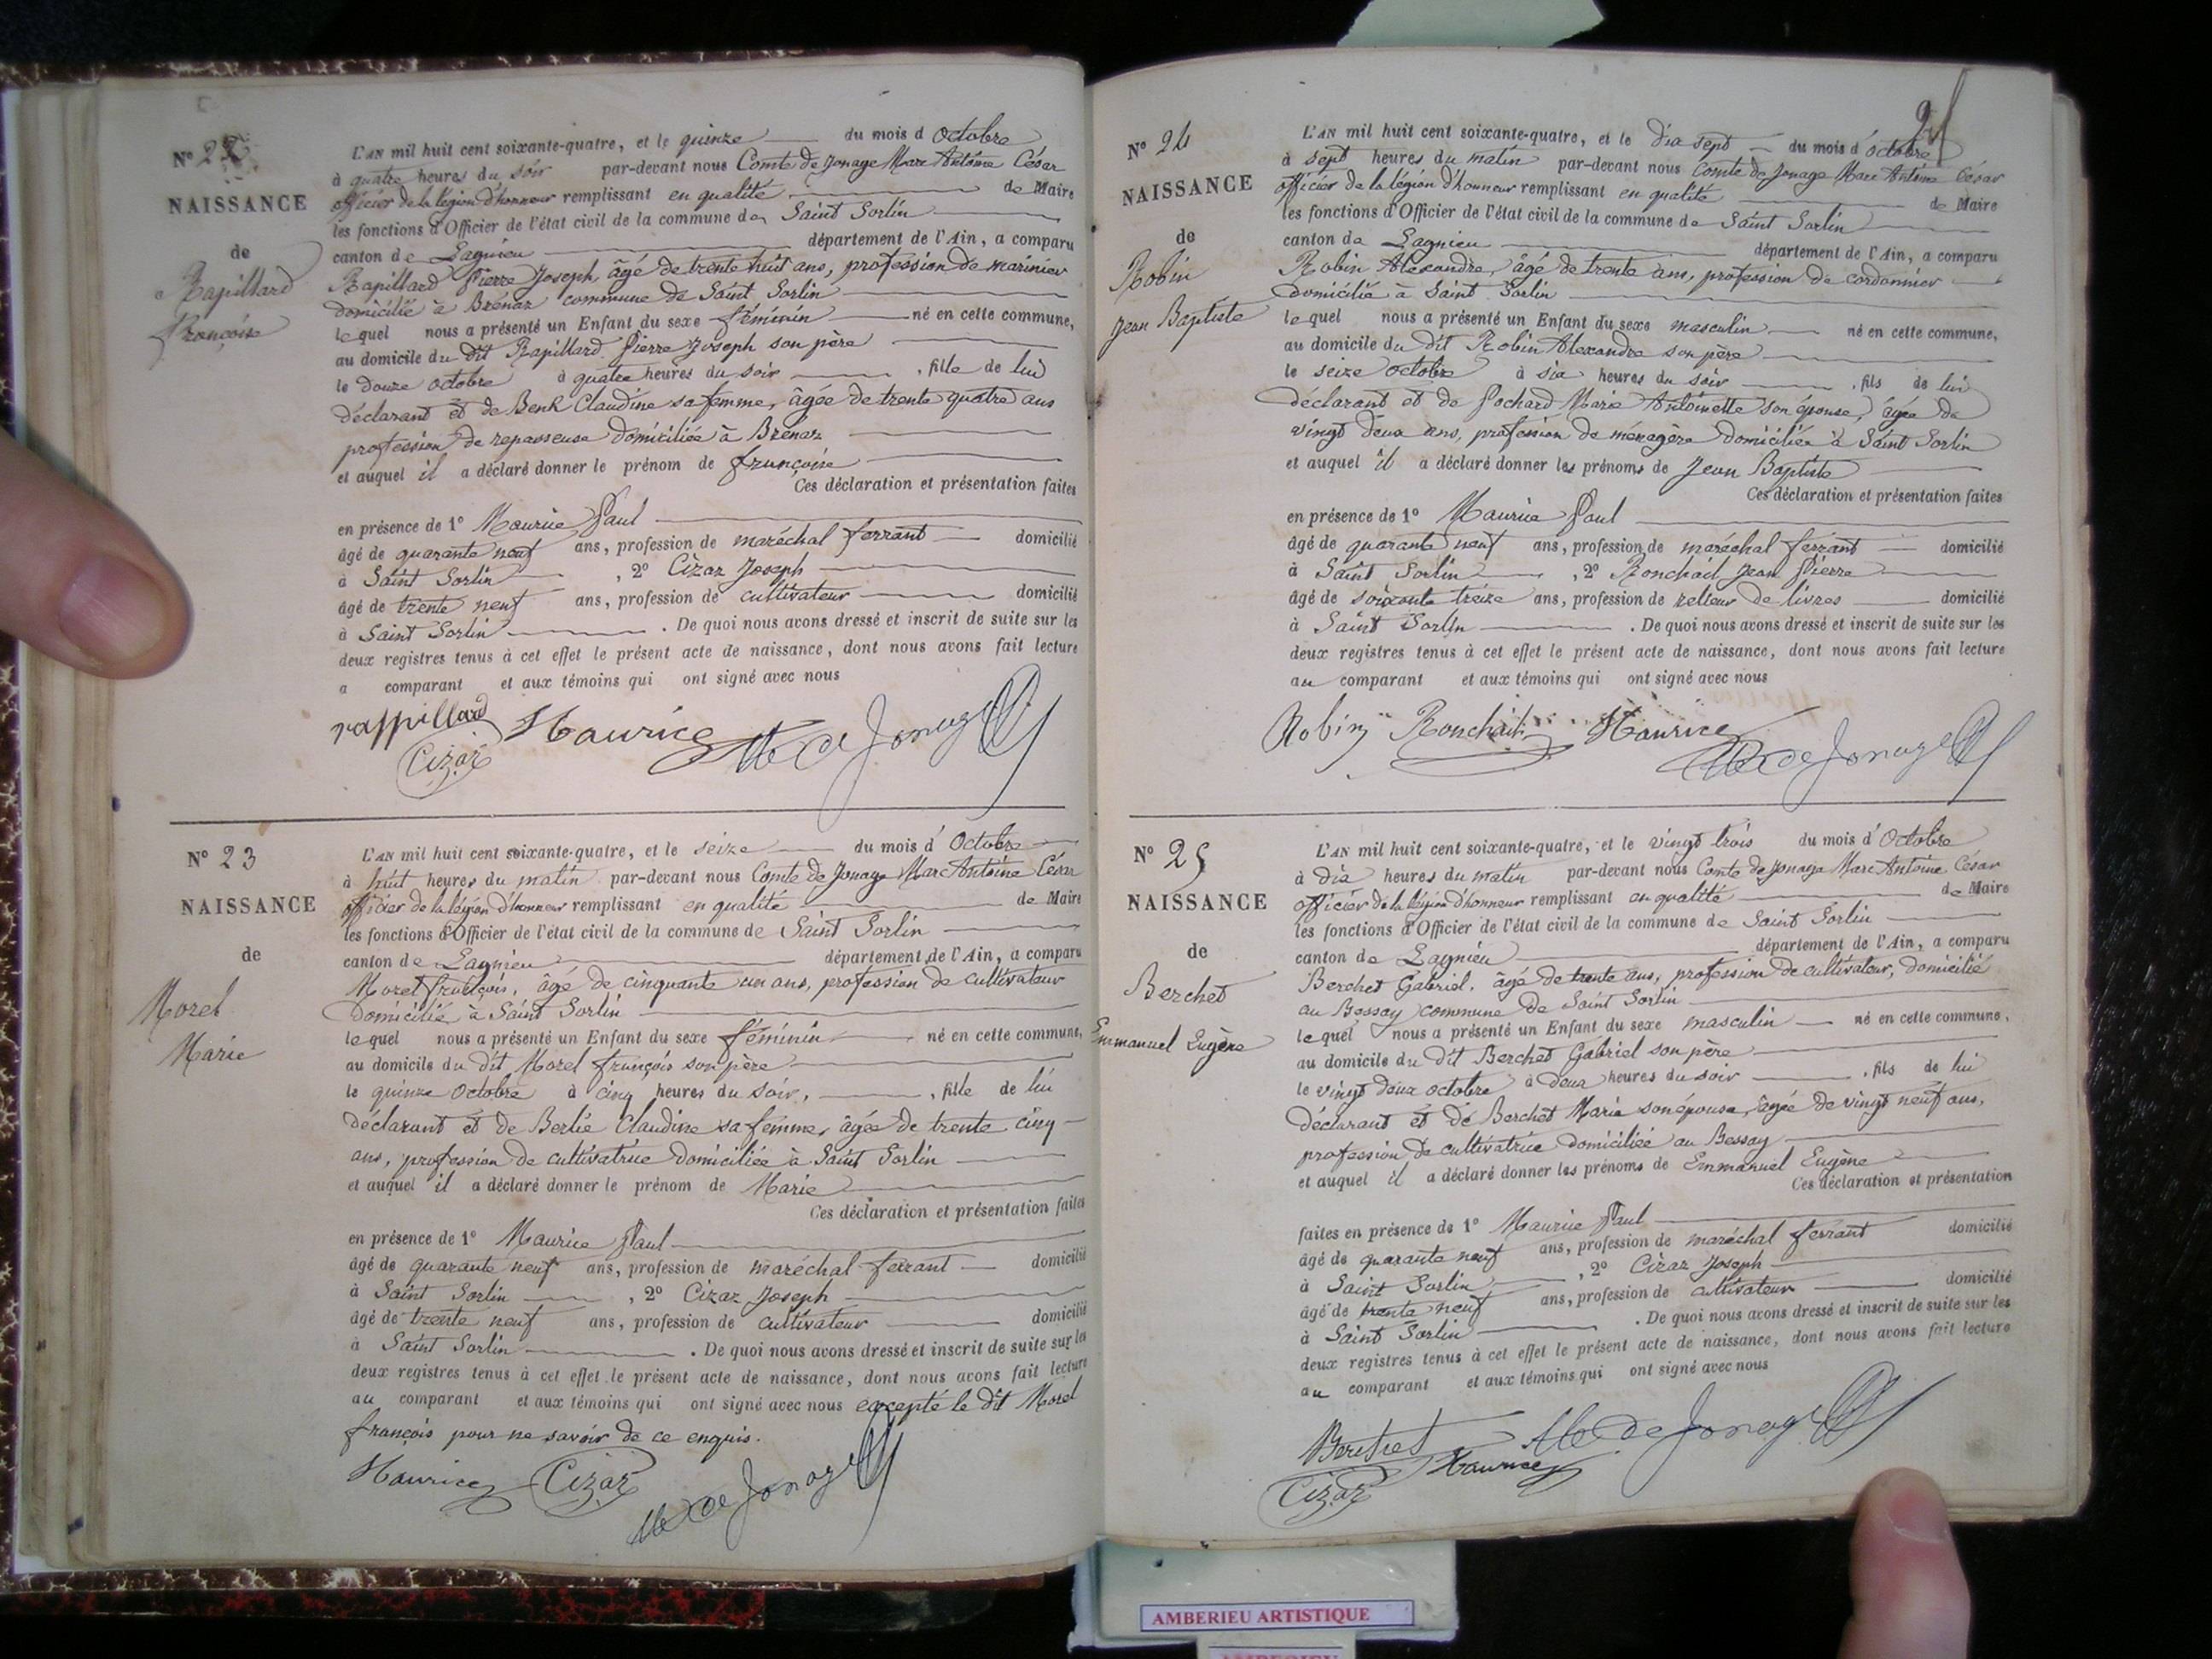 N° 22
NAISSANCE
de
Rapillard
Françoise
L'AN mil huit cent soixante-quatre, et le quinze du mois d'Octobre
à quatre heures du soir par-devant nous Comte de Jonage Marc Antoine César
officier de la légion d'honneur remplissant en qualité de Maire
les fonctions d'Officier de l'état civil de la commune de Saint Sorlin
canton de Lagnieu département de l'Ain, a comparu
Rapillard Pierre Joseph, âgé de trente huit ans, profession de marinier
domicilié à Brénaz commune de Saint Sorlin
lequel nous a présenté un Enfant du sexe féminin né en cette commune,
au domicile du dit Rapillard Pierre Joseph son père
le douze octobre à quatre heures du soir, fille de lui
déclarant et de Benk Claudine sa femme, âgée de trente quatre ans
profession de repasseuse domiciliée à Brénaz
et auquel il a déclaré donner le prénom de françoise
Ces déclaration et présentation faites
en présence de 1° Maurice Paul
âgé de quarante neuf ans, profession de maréchal ferrant domicilié
à Saint Sorlin, 2° Cizaz Joseph
âgé de trente neuf ans, profession de cultivateur domicilié
à Saint Sorlin. De quoi nous avons dressé et inscrit de suite sur les
deux registres tenus à cet effet le présent acte de naissance, dont nous avons fait lecture
a comparant et aux témoins qui ont signé avec nous
rappillard Maurice de Jonage
Cizaz
N° 23
NAISSANCE
de
Morel
Marie
L'AN mil huit cent soixante-quatre, et le seize du mois d'Octobre
à huit heures du matin par-devant nous Comte de Jonage Marc Antoine César
officier de la légion d'honneur remplissant en qualité de Maire
les fonctions d'Officier de l'état civil de la commune de Saint Sorlin
canton de Lagnieu département de l'Ain, a comparu
Morel françois, âgé de cinquante un ans, profession de cultivateur
domicilié à Saint Sorlin
lequel nous a présenté un Enfant du sexe féminin né en cette commune,
au domicile du dit Morel françois son père
le quinze Octobre à cinq heures du soir, fille de lui
déclarant et de Berlie Claudine sa femme, âgée de trente cinq
ans, profession de cultivatrice domiciliée à Saint Sorlin
et auquel il a déclaré donner le prénom de Marie
Ces déclaration et présentation faites
en présence de 1° Maurice Paul
âgé de quarante neuf ans, profession de maréchal ferrant domicilié
à Saint Sorlin, 2° Cizaz Joseph
âgé de trente neuf ans, profession de cultivateur domicilié
à Saint Sorlin. De quoi nous avons dressé et inscrit de suite sur les
deux registres tenus à cet effet le présent acte de naissance, dont nous avons fait lecture
au comparant et aux témoins qui ont signé avec nous excepté le dit Morel
françois pour ne savoir de ce enquis.
Maurice Cizaz de Jonage
N° 24
NAISSANCE
de
Robin
Jean Baptiste
L'AN mil huit cent soixante-quatre, et le dix sept du mois d'octobre
à sept heures du matin par-devant nous Comte de Jonage Marc Antoine César
officier de la légion d'honneur remplissant en qualité de Maire
les fonctions d'Officier de l'état civil de la commune de Saint Sorlin
canton de Lagnieu département de l'Ain, a comparu
Robin Alexandre, âgé de trente ans, profession de cordonnier
domicilié à Saint Sorlin
lequel nous a présenté un Enfant du sexe masculin né en cette commune,
au domicile du dit Robin Alexandre son père
le seize octobre à six heures du soir, fils de lui
déclarant et de Pochard Marie Antoinette son épouse, âgée de
vingt deux ans, profession de ménagère domiciliée à Saint Sorlin
et auquel il a déclaré donner les prénoms de Jean Baptiste
Ces déclaration et présentation faites
en présence de 1° Maurice Paul
âgé de quarante neuf ans, profession de maréchal ferrant domicilié
à Saint Sorlin, 2° Ronchail Jean Pierre
âgé de soixante treize ans, profession de relieur de livres domicilié
à Saint Sorlin. De quoi nous avons dressé et inscrit de suite sur les
deux registres tenus à cet effet le présent acte de naissance, dont nous avons fait lecture
au comparant et aux témoins qui ont signé avec nous
Robin Ronchail Maurice de Jonage
N° 25
NAISSANCE
de
Berchet
Emmanuel Eugène
L'AN mil huit cent soixante-quatre, et le vingt trois du mois d'Octobre
à dix heures du matin par-devant nous Comte de Jonage Marc Antoine César
officier de la légion d'honneur remplissant en qualité de Maire
les fonctions d'Officier de l'état civil de la commune de Saint Sorlin
canton de Lagnieu département de l'Ain, a comparu
Berchet Gabriel, âgé de trente ans, profession de cultivateur, domicilié
au Bessay commune de Saint Sorlin
lequel nous a présenté un Enfant du sexe masculin né en cette commune,
au domicile du dit Berchet Gabriel son père
le vingt deux octobre à deux heures du soir, fils de lui
déclarant et de Berchet Marie son épouse, âgée de vingt neuf ans,
profession de cultivatrice domiciliée au Bessay
et auquel il a déclaré donner les prénoms de Emmanuel Eugène
Ces déclaration et présentation
faites en présence de 1° Maurice Paul
âgé de quarante neuf ans, profession de maréchal ferrant domicilié
à Saint Sorlin, 2° Cizaz Joseph
âgé de trente neuf ans, profession de cultivateur domicilié
à Saint Sorlin. De quoi nous avons dressé et inscrit de suite sur les
deux registres tenus à cet effet le présent acte de naissance, dont nous avons fait lecture
au comparant et aux témoins qui ont signé avec nous
Berchet de Jonage
Cizaz Maurice
AMBERIEU ARTISTIQUE